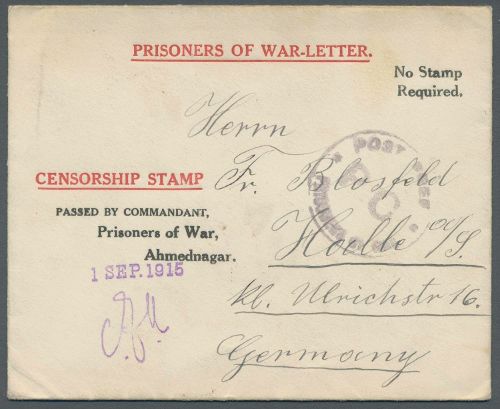 PRISONERS OF WAR-LETTER.
No Stamp
Required.
Herrn
CENSORSHIP STAMP
Fr. Blosfeld
PASSED BY COMMANDANT,
Prisoners of War,
Halle a/S.
Ahmednagar.
1 SEP. 1915
kl. Ulrichstr 16.
Germany
POST FREE